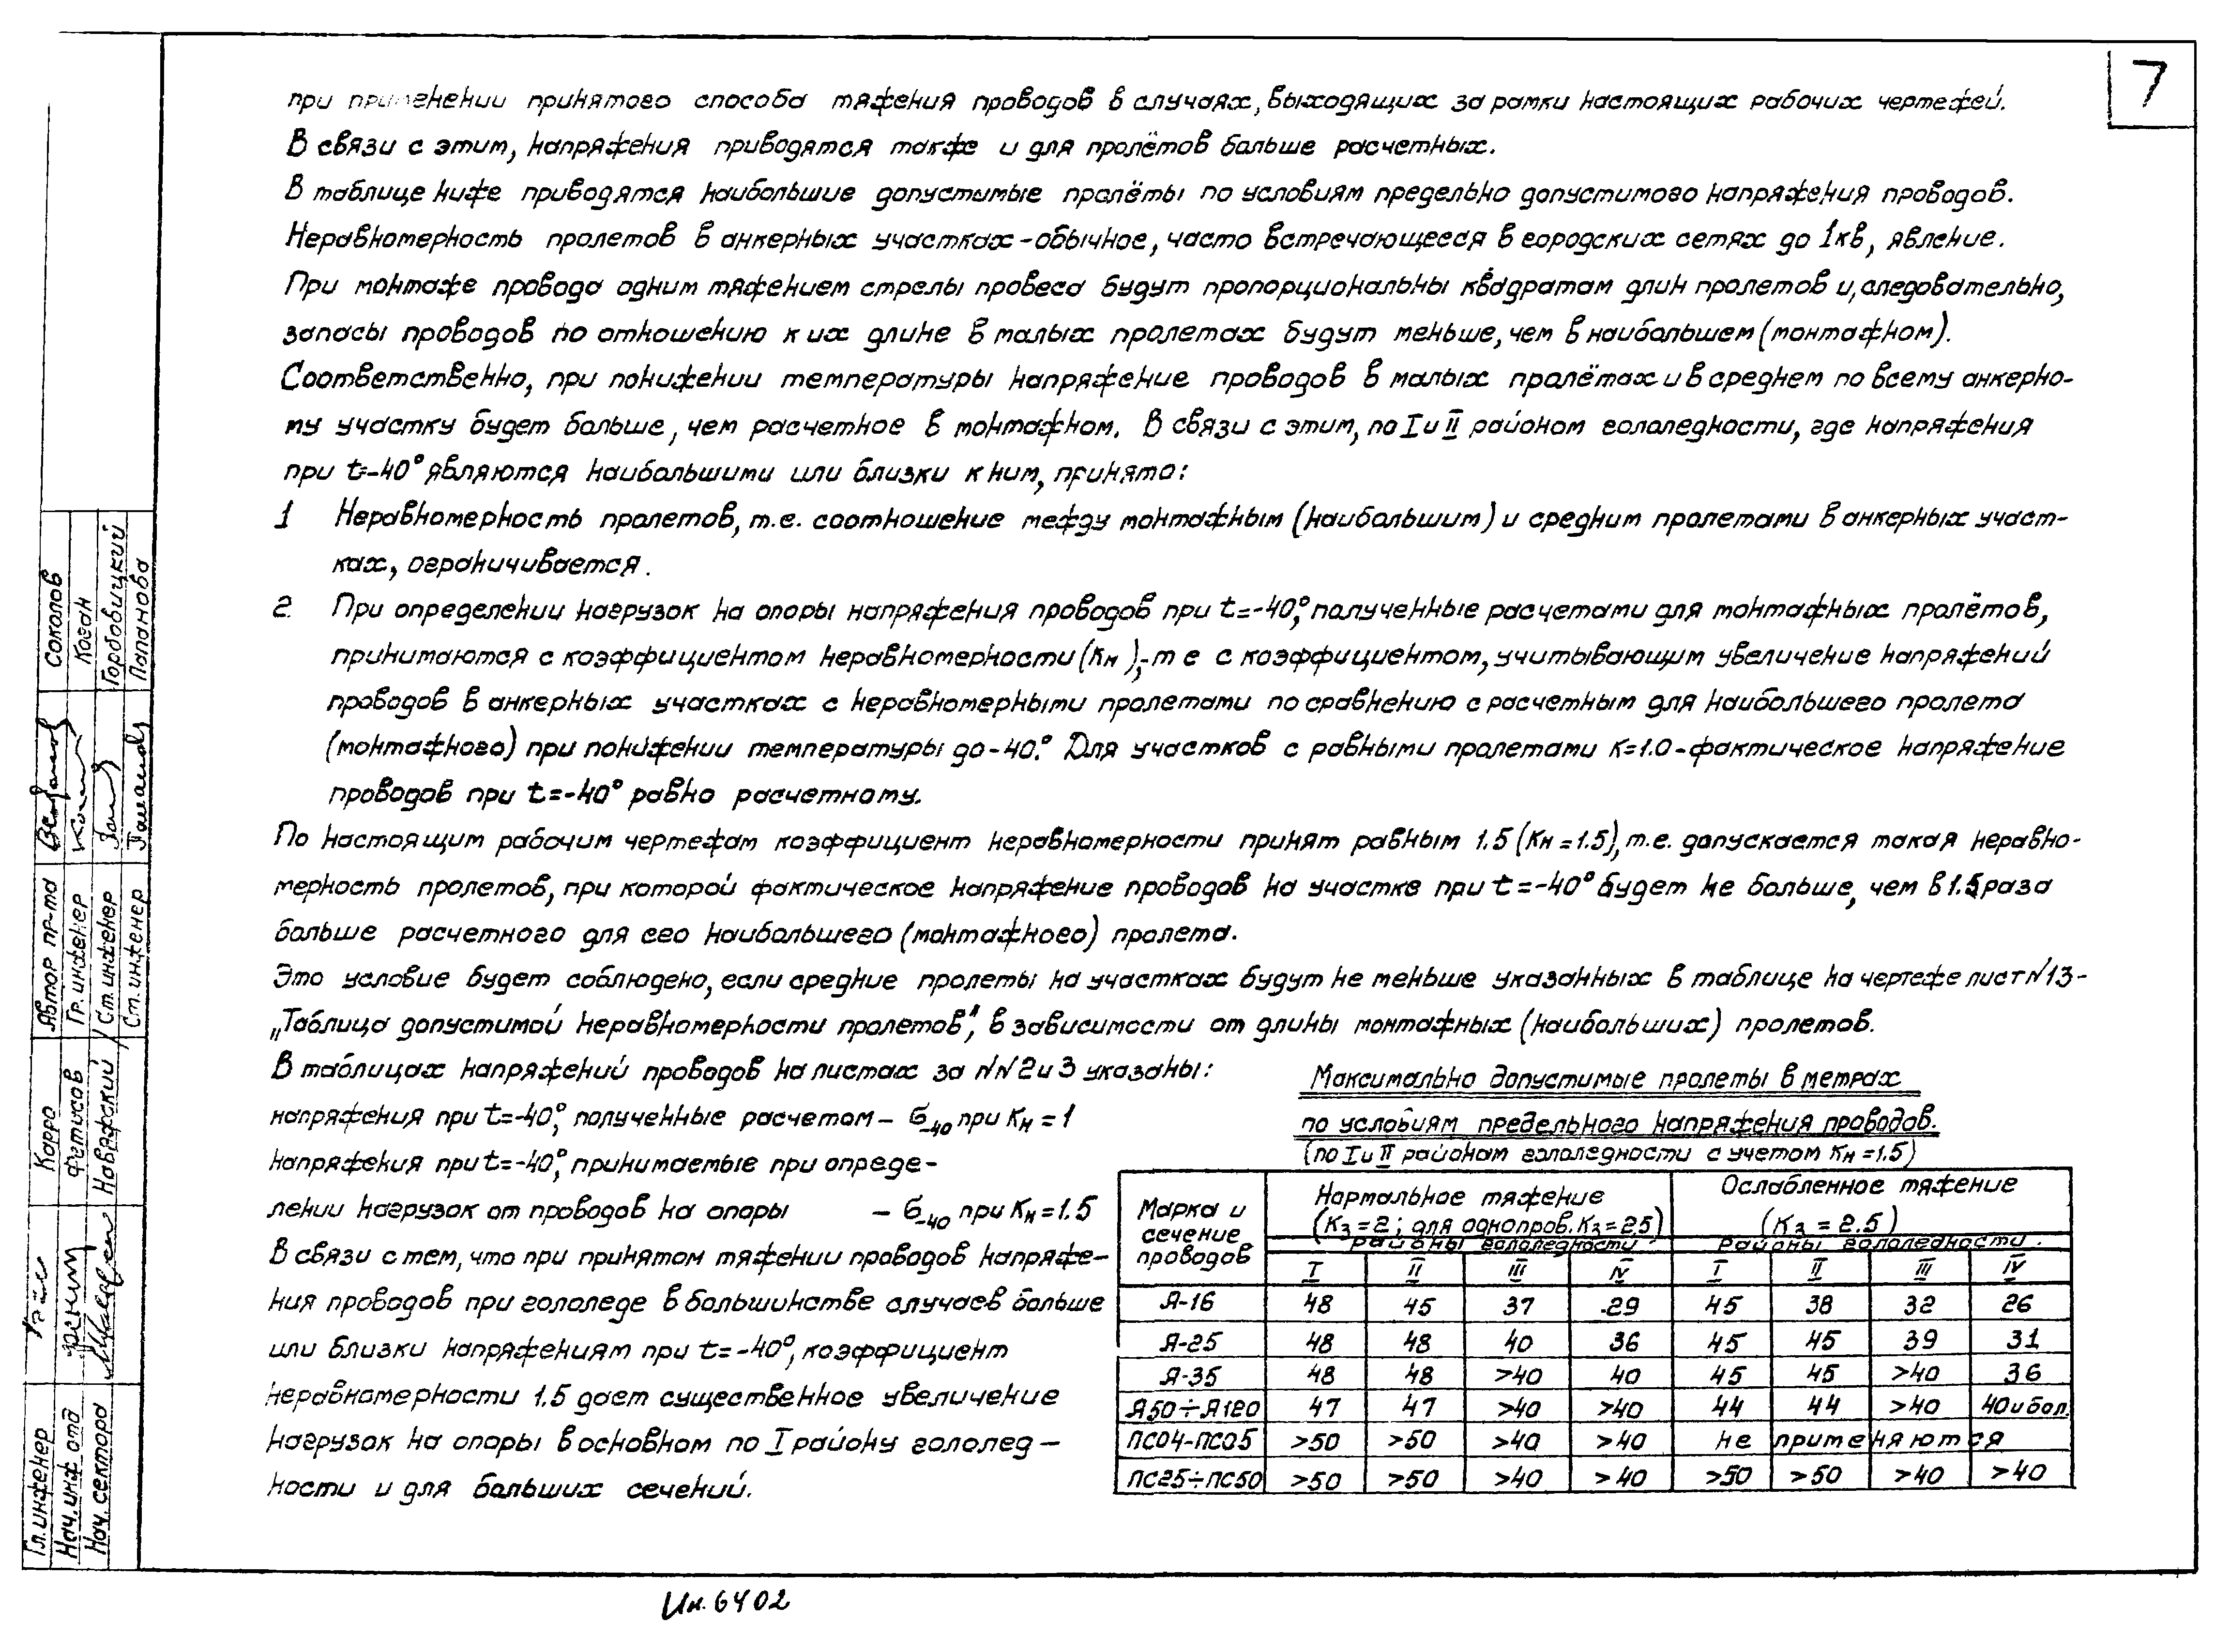 7
при применении принятого способа тяжения проводов в случаях, выходящих за рамки настоящих рабочих чертежей.
В связи с этим, напряжения приводятся также и для пролётов больше расчетных.
В таблице ниже приводятся наибольшие допустимые пролёты по условиям предельно допустимого напряжения проводов.
Неравномерность пролетов в анкерных участках-обычное, часто встречающееся в городских сетях до 1кв, явление.
При монтаже провода одним тяжением стрелы провеса будут пропорциональны квадратам длин пролетов и, следовательно,
запасы проводов по отношению к их длине в малых пролетах будут меньше, чем в наибольшем (монтажном).
Соответственно, при понижении температуры напряжение проводов в малых пролётах и в среднем по всему анкерно-
му участку будет больше, чем расчетное в монтажном. В связи с этим, по I и II районам гололедности, где напряжения
при t=-40° являются наибольшими или близки к ним, принято:
1 Неравномерность пролетов, т.е. соотношение между монтажным (наибольшим) и средним пролетами в анкерных участ-
ках, ограничивается.
2. При определении нагрузок на опоры напряжения проводов при t=-40°, полученные расчетами для монтажных пролётов,
принимаются с коэффициентом неравномерности (Кн),-т е с коэффициентом, учитывающим увеличение напряжений
проводов в анкерных участках с неравномерными пролетами по сравнению с расчетным для наибольшего пролета
(монтажного) при понижении температуры до -40°. Для участков с равными пролетами К=1.0-фактическое напряжение
проводов при t=-40° равно расчетному.
По настоящим рабочим чертежам коэффициент неравномерности принят равным 1.5 (Кн=1.5), т.е. допускается такая неравно-
мерность пролетов, при которой фактическое напряжение проводов на участке при t=-40° будет не больше, чем в 1.5 раза
больше расчетного для его наибольшего (монтажного) пролета.
Это условие будет соблюдено, если средние пролеты на участках будут не меньше указанных в таблице на чертеже лист N13-
„Таблица допустимой неравномерности пролетов", в зависимости от длины монтажных (наибольших) пролетов.
В таблицах напряжений проводов на листах за NN 2 и 3 указаны:
напряжения при t=-40°, полученные расчетом – б-40 при Кн = 1
напряжения при t=-40°, принимаемые при опреде-
лении нагрузок от проводов на опоры – б-40 при Кн=1.5
В связи с тем, что при принятом тяжении проводов напряже-
ния проводов при гололеде в большинстве случаев больше
или близки напряжениям при t=-40°, коэффициент
неравномерности 1.5 дает существенное увеличение
нагрузок на опоры в основном по I району гололед-
ности и для больших сечений.
Максимально допустимые пролеты в метрах
по условиям предельного напряжения проводов.
(по I и II районам гололедности с учетом Кн=1.5)
Марка и сечение проводов | Нормальное тяжение (Кз=2; для однопров. Кз=2.5) | Ослабленное тяжение (Кз = 2.5)
Районы гололедности. | Районы гололедности.
I II III IV I II III IV
А-16 48 45 37 29 45 38 32 26
А-25 48 48 40 36 45 45 39 31
А-35 48 48 >40 40 45 45 >40 36
А50÷А120 47 47 >40 >40 44 44 >40 40 и бол.
ПС04-ПС05 >50 >50 >40 >40 не применяются
ПС25÷ПС50 >50 >50 >40 >40 >50 >50 >40 >40
Гл. инженер Карро
Нач. инж отд Фетисов
Нач. сектора Навяжский
Автор пр-та Соколов
Гр. инженер Коган
Ст. инженер Горбовицкий
Ст. инженер Папанова
Ин. 6402